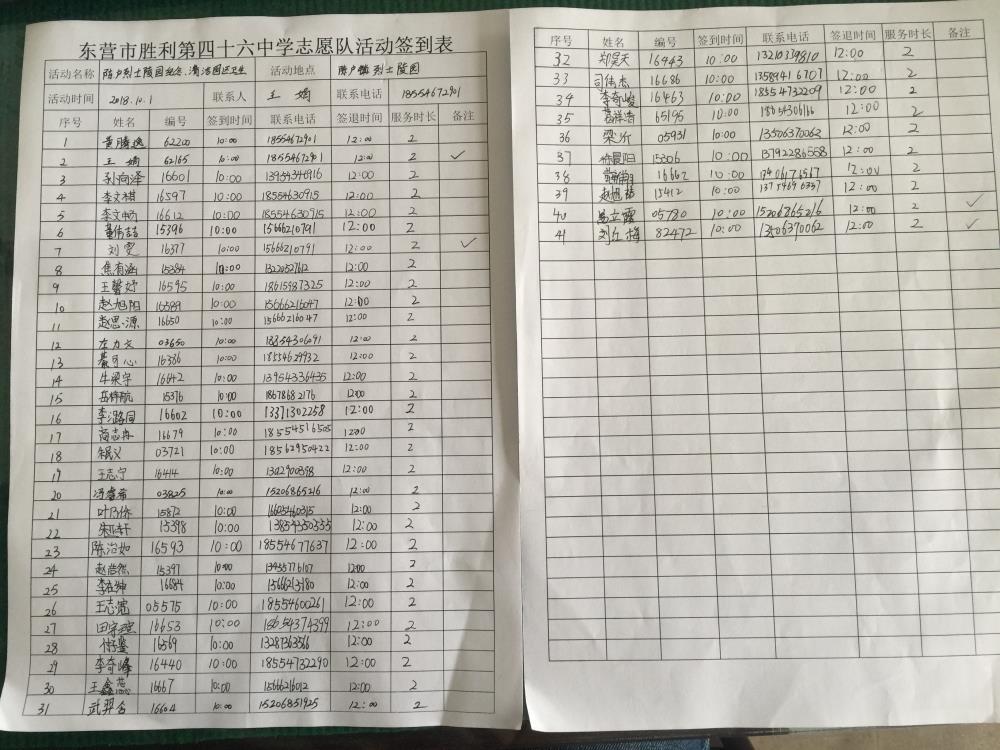 东营市胜利第四十六中学志愿队活动签到表
活动名称 陈户烈士陵园纪念、清洁园区卫生 活动地点 陈户镇烈士陵园
活动时间 2018.10.1 联系人 王娟 联系电话 18554672901
序号 姓名 编号 签到时间 联系电话 签退时间 服务时长 备注
1 黄腾逸 62200 10:00 18554672901 12:00 2
2 王娟 62165 10:00 18554672901 12:00 2 ✓
3 16601 10:00 13954340916 12:00 2
4 李文祺 16597 10:00 18554630915 12:00 2
5 李文畅 16612 10:00 18554630915 12:00 2
6 董伟喆 15396 10:00 15666210791 12:00 2
7 刘雯 16377 10:00 15666210791 12:00 2 ✓
8 焦有涵 15384 10:00 13220527612 12:00 2
9 王馨妤 16595 10:00 18615987325 12:00 2
10 赵旭阳 16589 10:00 15666216047 12:00 2
11 赵思源 16650 10:00 15666216047 12:00 2
12 左力文 03650 10:00 18854306091 12:00 2
13 綦可心 16386 10:00 18554629932 12:00 2
14 牛梁宇 16642 10:00 13954336435 12:00 2
15 岳梓航 15376 10:00 18678682176 12:00 2
16 李潞同 16602 10:00 13371302258 12:00 2
17 商志冉 16679 10:00 18554516505 12:00 2
18 03721 10:00 18562950422 12:00 2
19 王志宁 16414 10:00 12:00 2
20 冯睿希 03825 10:00 15206865216 12:00 2
21 15872 10:00 16605460315 12:00 2
22 15398 10:00 13854350335 12:00 2
23 陈冶如 16593 10:00 18554677637 12:00 2
24 赵浩然 15397 10:00 13455776107 12:00 2
25 16684 10:00 15666213180 12:00 2
26 05575 10:00 18554600261 12:00 2
27 田宇瑄 16653 10:00 18654374399 12:00 2
28 付鉴 16569 10:00 13287363566 12:00 2
29 李奇峰 16440 10:00 18554732290 12:00 2
30 王鑫蕊 16667 10:00 15666216012 12:00 2
31 武羿含 16604 10:00 15206851925 12:00 2
序号 姓名 编号 签到时间 联系电话 签退时间 服务时长 备注
32 郑昊天 16443 10:00 13210339810 12:00 2
33 司伟杰 16686 10:00 13589416707 12:00 2
34 李奇峻 16463 10:00 18554732209 12:00 2
35 65195 10:00 18654306166 12:00 2
36 梁沂 05931 10:00 13506370062 12:00 2
37 徐晨阳 15306 10:00 13792286558 12:00 2
38 16662 10:00 12:00 2
39 15412 10:00 12:00 2
40 05780 10:00 15206865216 12:00 2 ✓
41 刘红梅 82472 10:00 13506370062 12:00 2 ✓